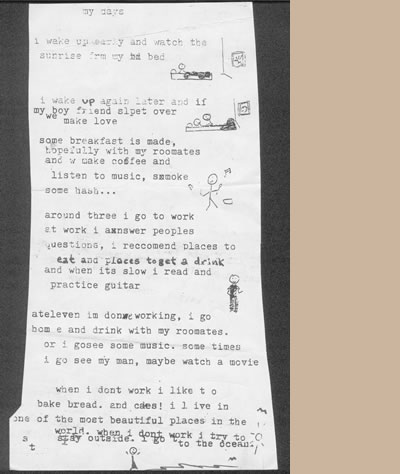 my days
i wake up early and watch the
sunrise frm my bed
i wake up again later and if
my boy friend slpet over
we make love
some breakfast is made,
hopefully with my roomates
and w make coffee and
listen to music, smoke
some hash...
around three i go to work
at work i answer peoples
questions, i reccomend places to
eat and places to get a drink
and when its slow i read and
practice guitar
ateleven im done working, i go
home and drink with my roomates.
or i gosee some music. some times
i go see my man, maybe watch a movie
when i dont work i like t o
bake bread. and cakes! i l ive in
one of the most beautiful places in the
world. when i dont work i try to
stay outside. i go to the ocean.